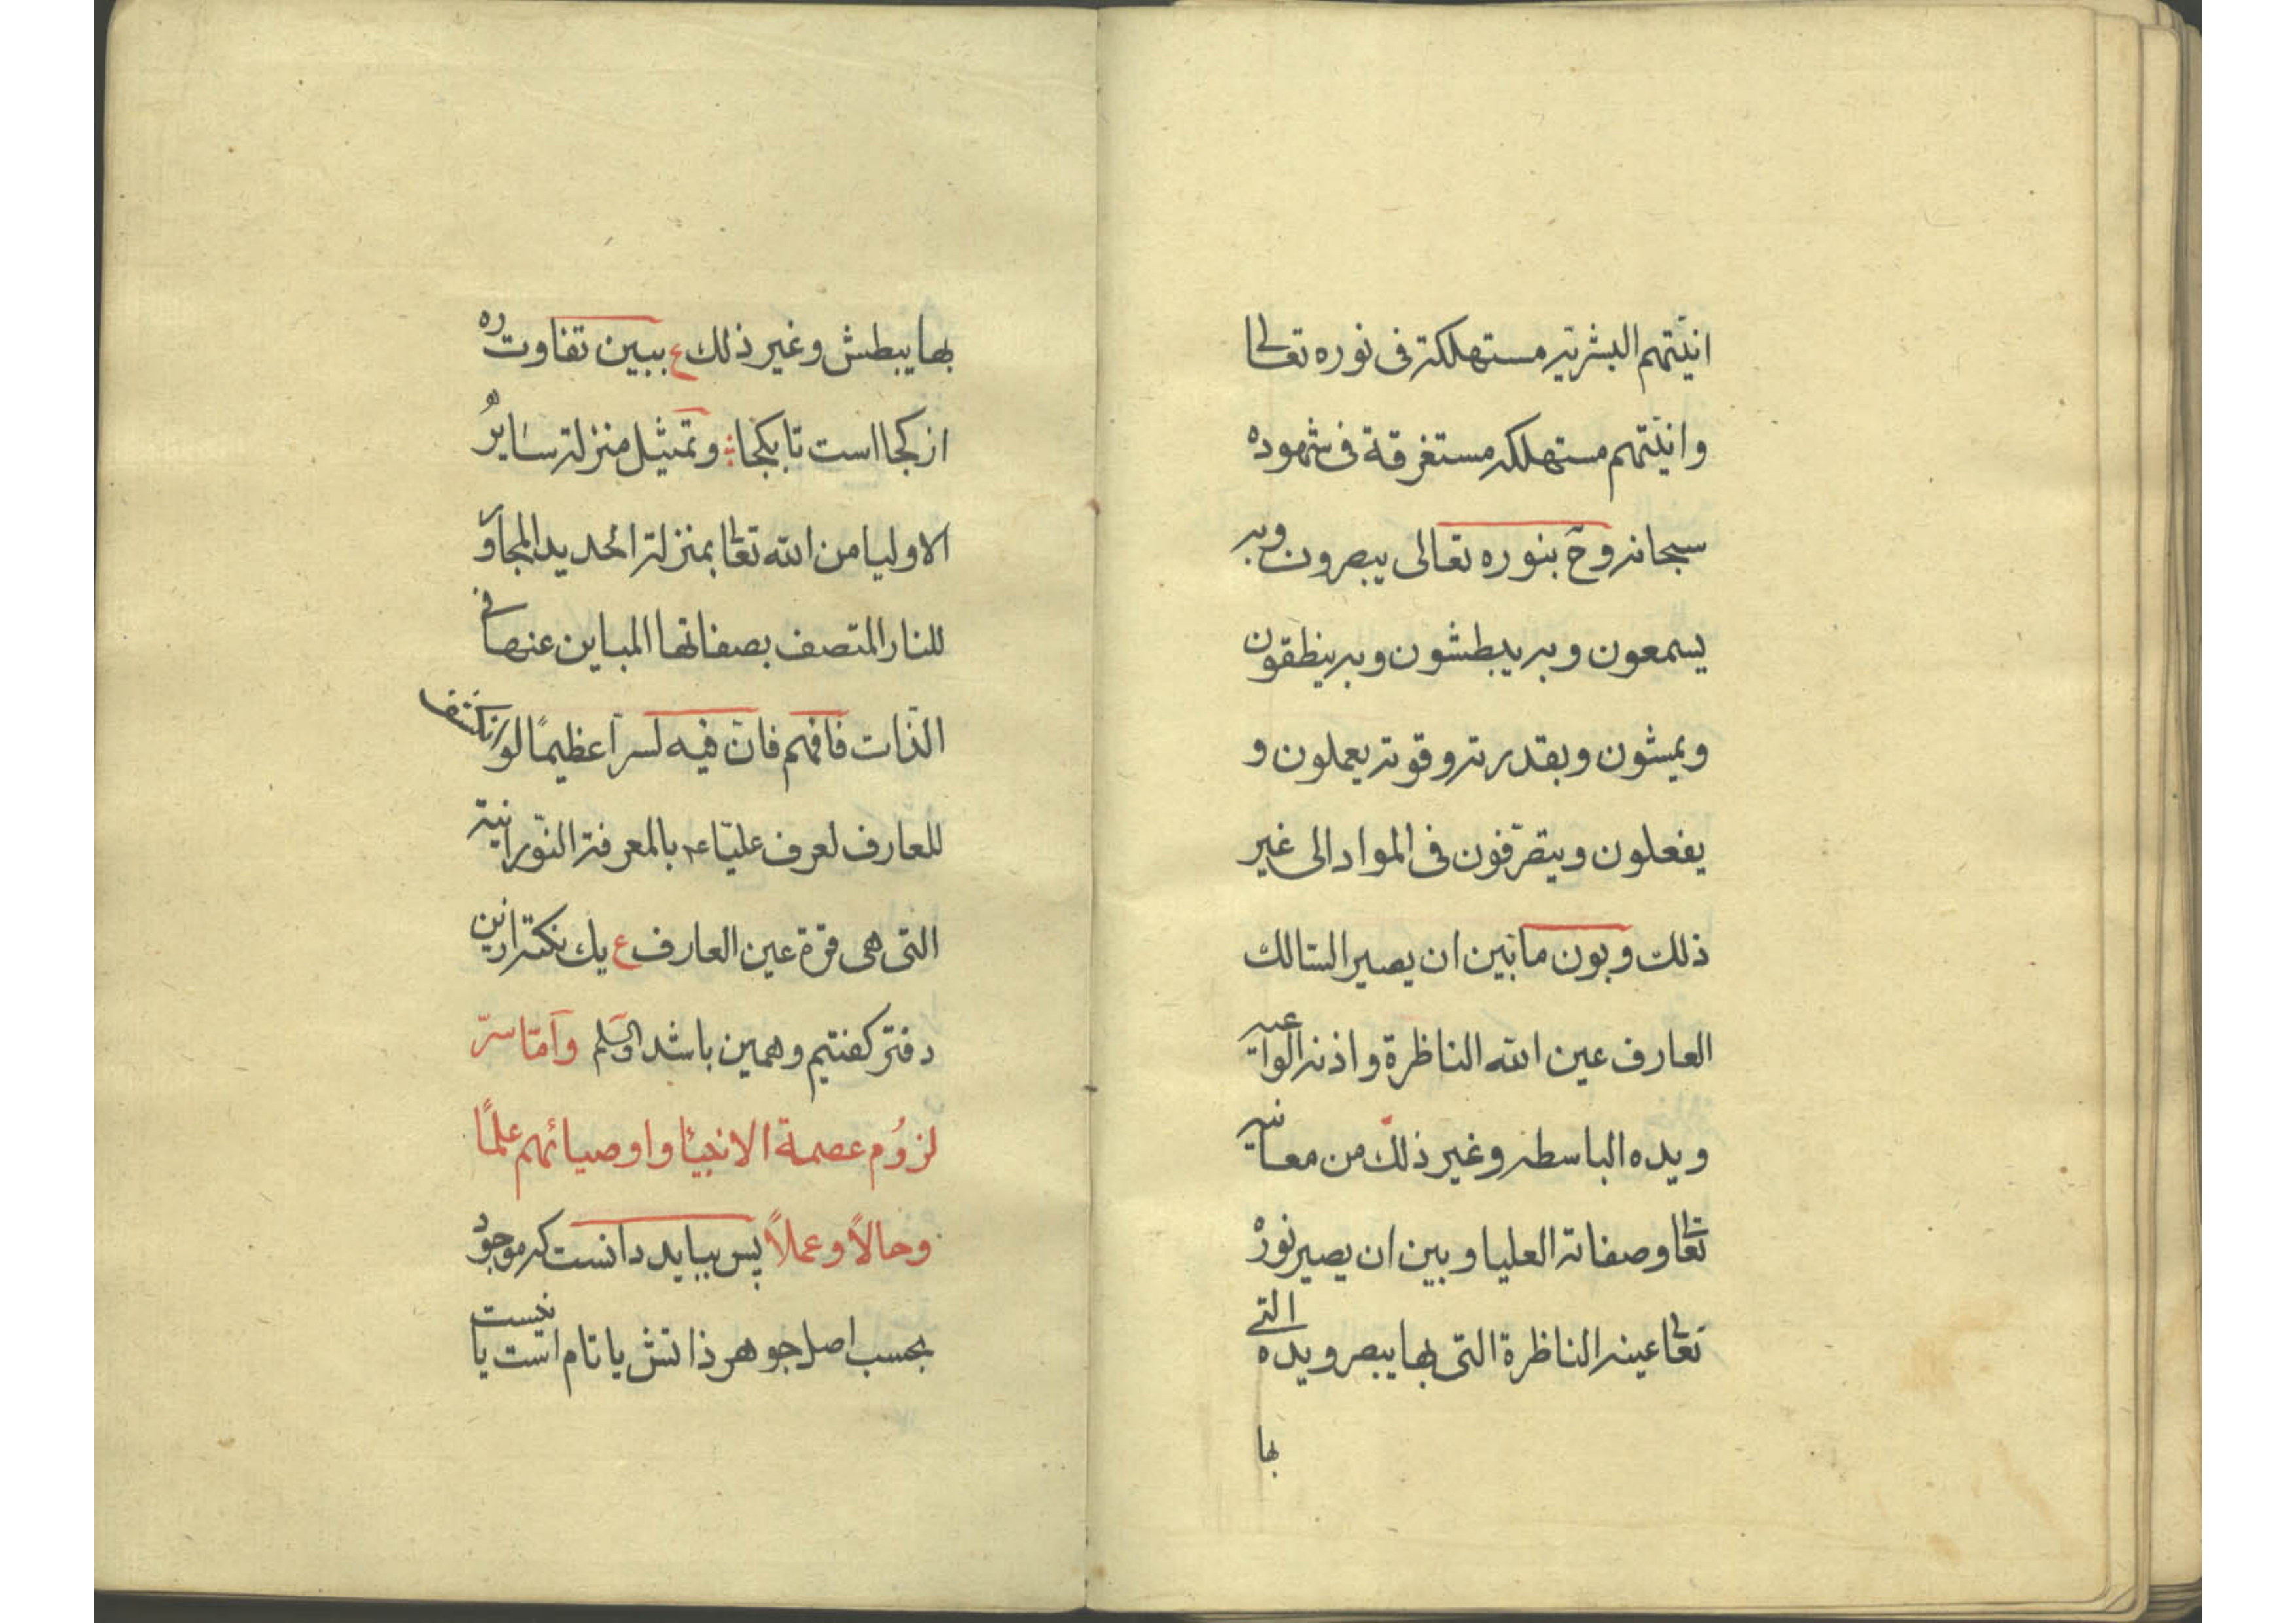 انیّتهم البشریة مستهلكة فی نوره تعالی
وانیّتهم مستهلكة مستغرقة فی شهوده
سبحانه وحّ بنوره تعالی یبصرون وبه
یسمعون وبه یبطشون وبه ینطقون
ویمشون وبقدرته وقوته یعملون و
یفعلون ویتصرّفون فی المواد الی غیر
ذلك وبون ما بین ان یصیر السالك
العارف عین الله الناظرة واذنه الواعیة
ویده الباسطه وغیر ذلك من معانیه
تعالی وصفاته العلیا وبین ان یصیر نوره
تعالی عینه الناظرة التی بها یبصر ویده التی
بها
بها یبطش وغیر ذلك ع ببین تفاوت ره
از كجا است تا بكجا وتمثیل منزلة سایر
الاولیا من الله تعالی بمنزلة الحدید المجاور
للنار المتصف بصفاتها المباین عنها فی
الذّات فافهم فانّ فیه لسرّاً عظیمًا لو انكشف
للعارف لعرف علیّاء بالمعرفة النّورانیة
التی هی قرّة عین العارف ع یك نكته ازین
دفتر كفتیم وهمین باشد والسّلم وَامّا سرّ
لزوُم عصمة الانبیٰا واوصیائهم علمًا
وحالاً وعملاً پس بباید دانست كه موجود
بحسب اصل جوهر ذاتش یا تام است یا نیست